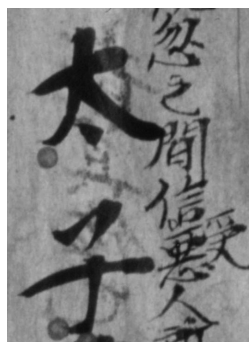 忽之間信受悪人
太子